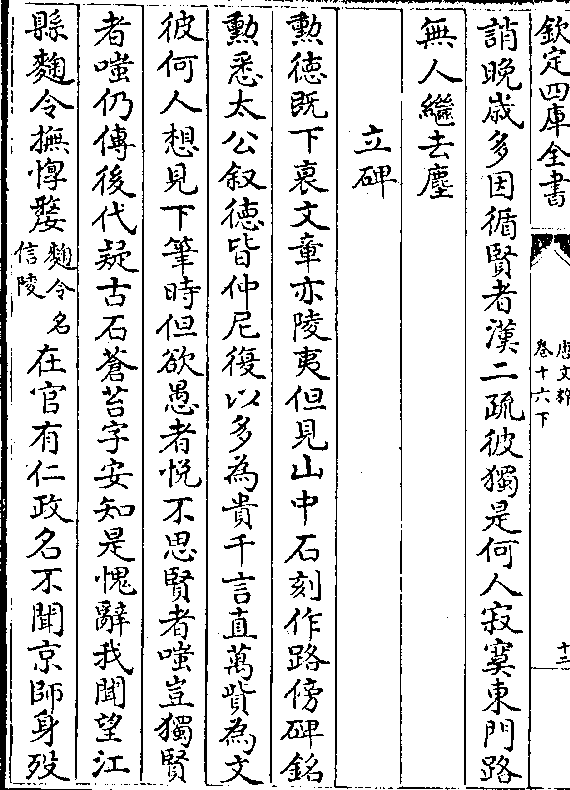 欽定四庫全書
唐文粹
卷十六下
十三
誚晚歲多因循賢者漢二疏彼獨是何人寂寞東門路
無人繼去塵
立碑
勲德既下衰文章亦陵夷但見山中石刻作路傍碑銘
勲悉太公叙德皆仲尼復以多為貴千言直萬貲為文
彼何人想見下筆時但欲愚者悦不思賢者嗤豈獨賢
者嗤仍傳後代疑古石蒼苔字安知是愧辭我聞望江
縣麴令撫惸嫠麴令名信陵在官有仁政名不聞京師身歿